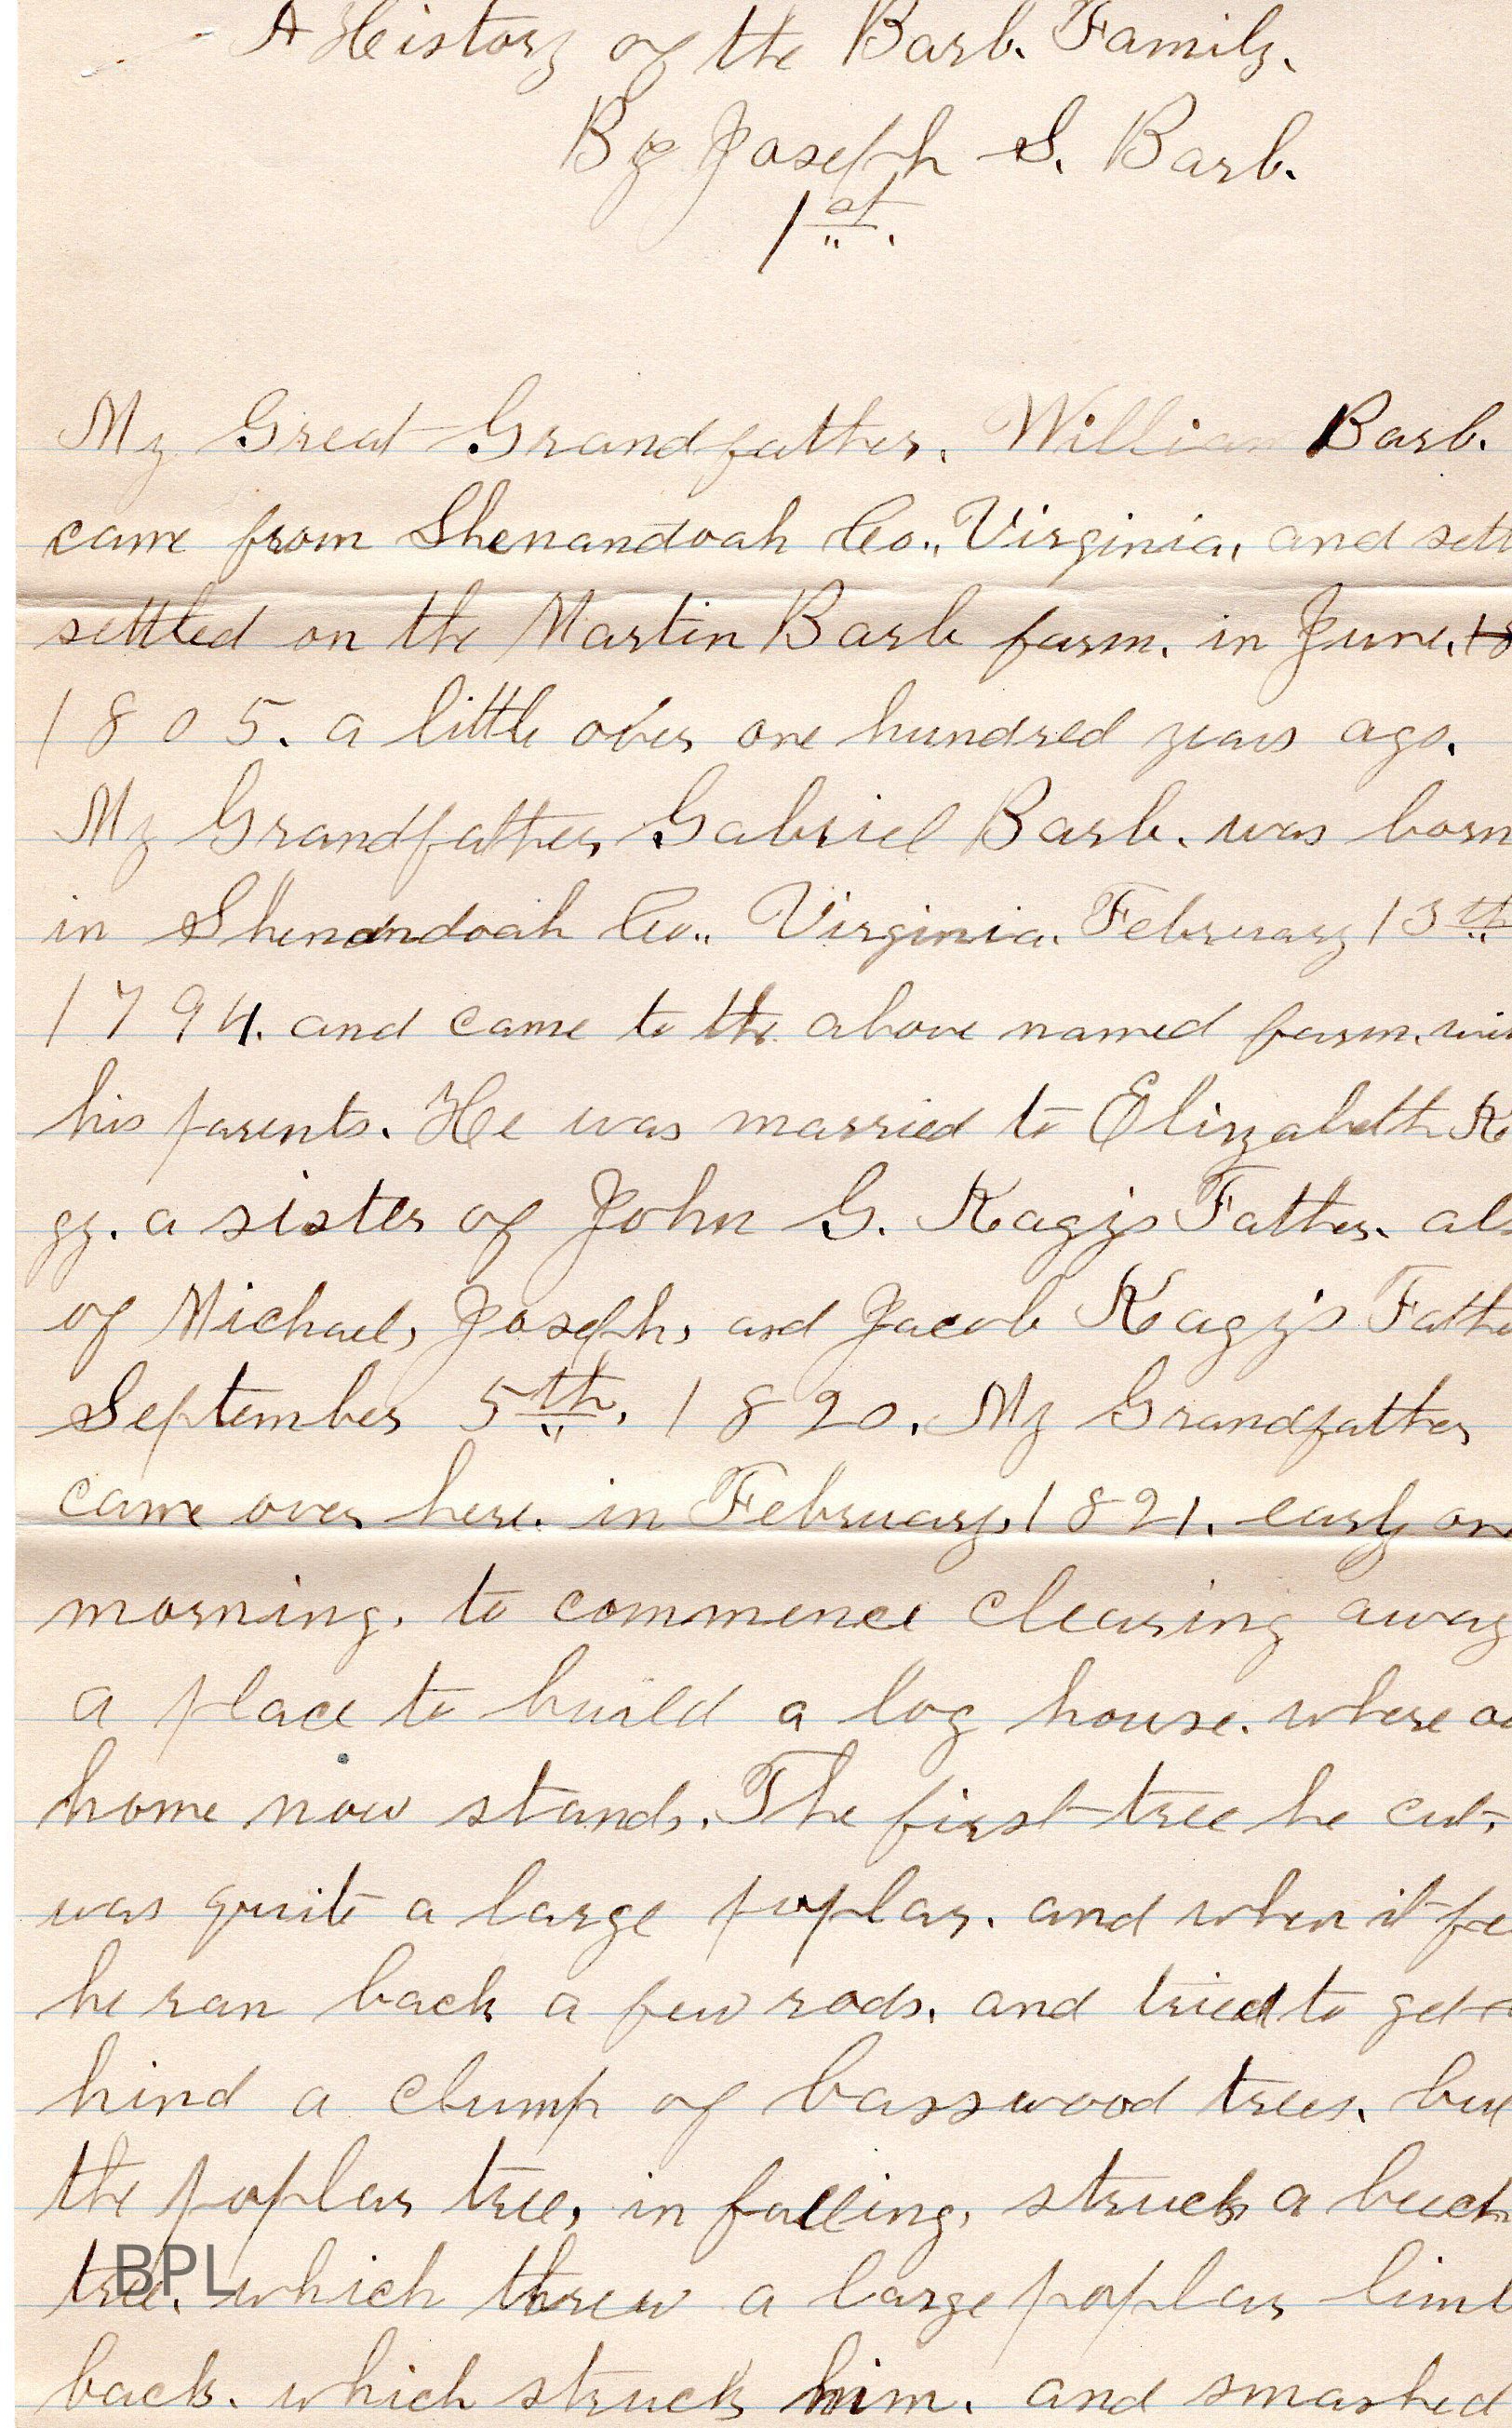 A History of the Barb. Family.
By Joseph S. Barb.
1st.
My Great Grandfather. William Barb.
came from Shenandoah Co., Virginia, and sett
settled on the Martin Barb farm. in June. 18
1805. a little over one hundred years ago.
My Grandfather, Gabriel Barb. was born
in Shenandoah Co., Virginia. February 13th
1794. and came to the above named farm. wit
his parents. He was married to Elizabeth Ka
gy. a sister of John G. Kagy's Father. als
of Michael, Joseph, and Jacob Kagy's Fathe
September 5th. 1820. My Grandfather
came over here. in February, 1821. early on
morning. to commence clearing away
a place to build a log house. where ou
home now stands. The first tree he cut.
was quite a large poplar. and when it fe
he ran back a few rods. and tried to get
hind a clump of basswood trees. but
the poplar tree, in falling, struck a beech
tree. which threw a large poplar limb
back. which struck him. and smashed
BPL